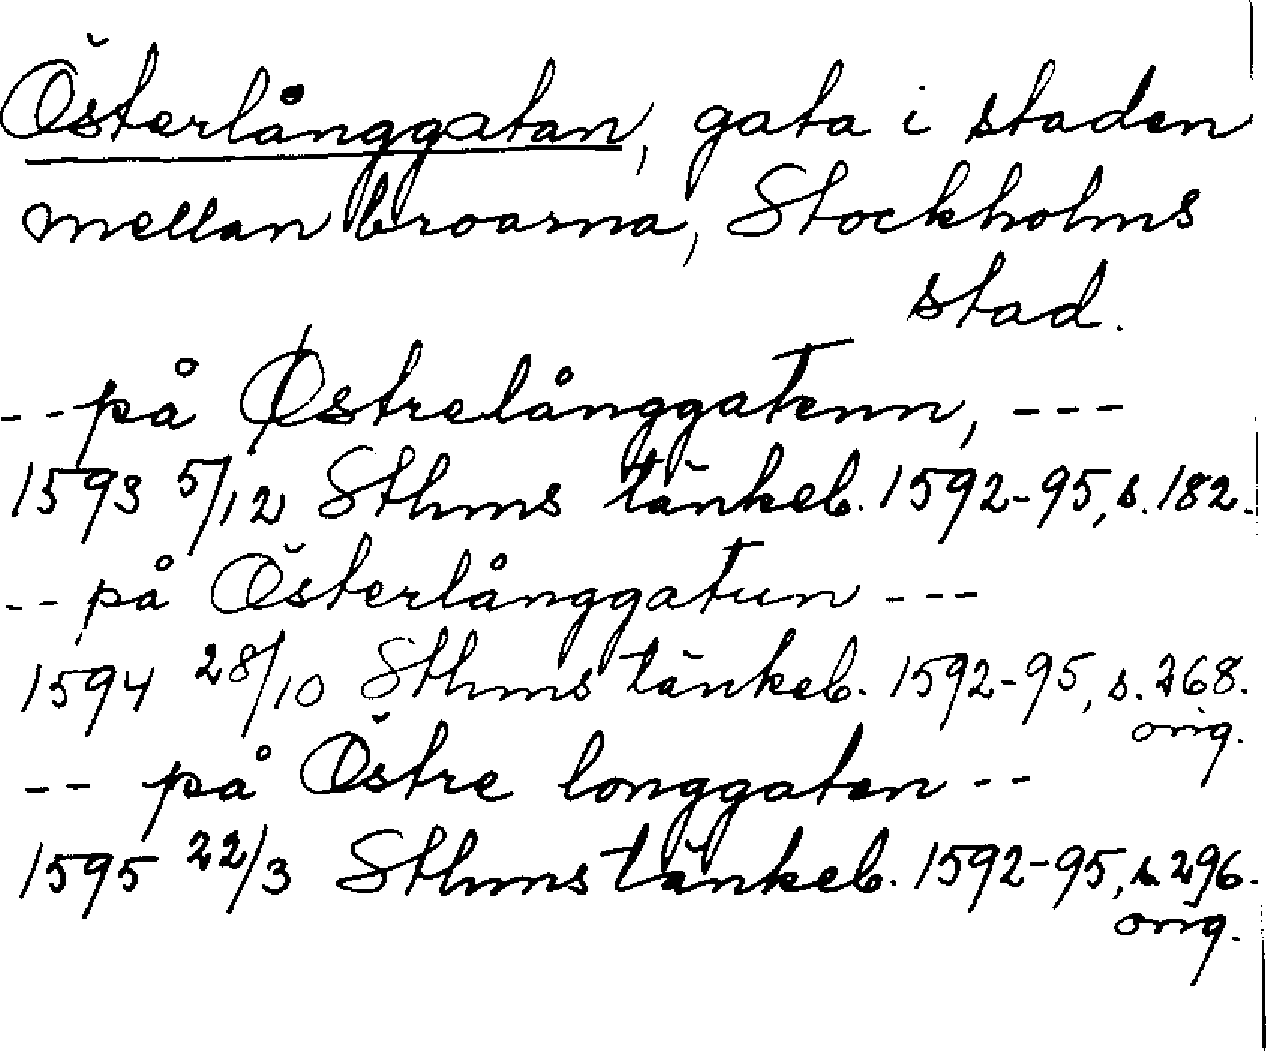 Österlånggatan, gata i staden
mellan broarna, Stockholms
stad.
-- på Østrelånggatenn, ---
1593 5/12 Sthms tänkeb. 1592-95, s. 182.
-- på Österlånggatun ---
1594 28/10 Sthms tänkeb. 1592-95, s. 268.
orig.
-- på Östre longgaten --
1595 22/3 Sthms tänkeb. 1592-95, s. 296.
orig.